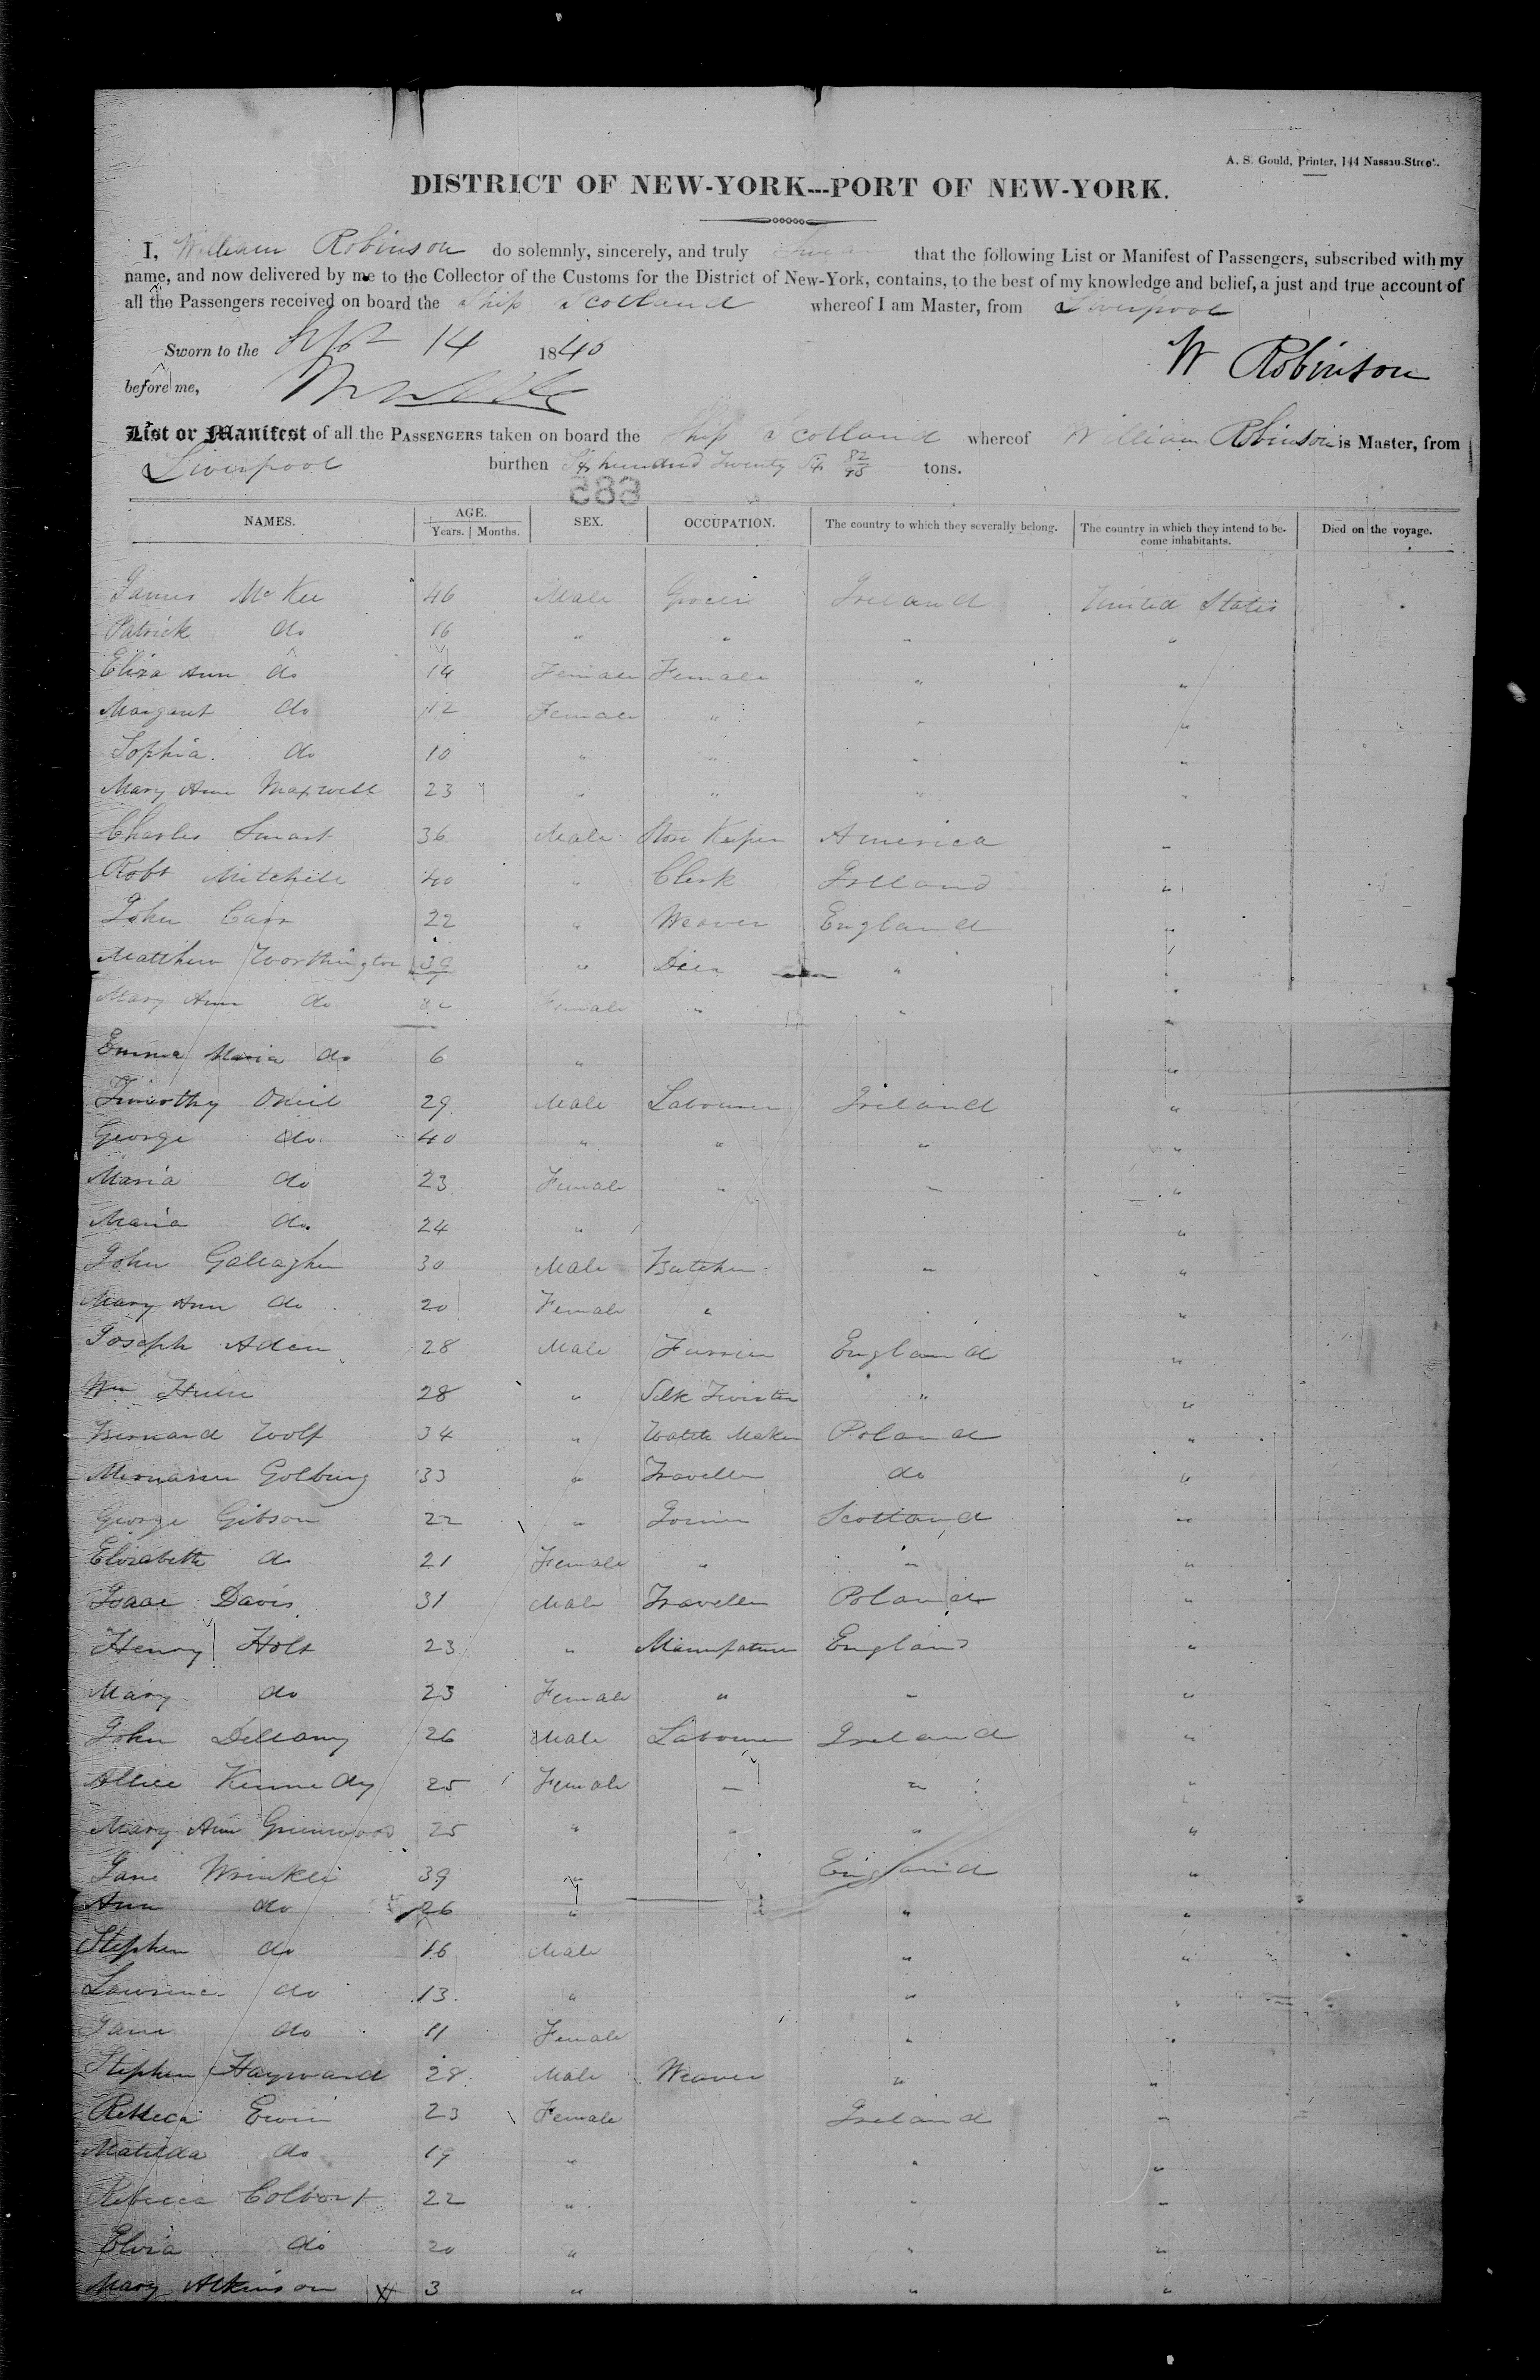 A. S. Gould, Printer, 144 Nassau-Street.
DISTRICT OF NEW-YORK---PORT OF NEW-YORK.
I, William Robinson do solemnly, sincerely, and truly Swear that the following List or Manifest of Passengers, subscribed with my
name, and now delivered by me to the Collector of the Customs for the District of New-York, contains, to the best of my knowledge and belief, a just and true account of
all the Passengers received on board the Ship Scotland whereof I am Master, from Liverpool
Sworn to the Sept 14 1840
W Robinson
before me,
List or Manifest of all the PASSENGERS taken on board the Ship Scotland whereof William Robinson is Master, from
Liverpool burthen Six hundred Twenty Six 82/95 tons.
583
NAMES. AGE. Years. Months. SEX. OCCUPATION. The country to which they severally belong. The country in which they intend to become inhabitants. Died on the voyage.
James McKee 46 Male Grocer Ireland United States
Patrick do 16 " " " "
Eliza Ann do 14 Female Female " "
Margaret do 12 Female " " "
Sophia do 10 " " " "
Mary Ann Maxwell 23 " " " "
Charles Smart 36 Male Store Keeper America "
Robt Mitchell 40 " Clerk Ireland "
John Carr 22 " Weaver England "
Matthew Worthington " Dier " "
Mary Ann do Female " " "
Emma Maria do 6 " "
Timothy Oneil 29 Male Labourer Ireland "
George do 40 " " " "
Maria do 23 Female " " "
Maria do 24 " "
John Gallagher 30 Male Butcher " "
Mary Ann do 20 Female " " "
Joseph Aden 28 Male Furrier England "
Wm 28 " Silk Twister " "
Bernard Wolf 34 " Watch Maker Poland "
Golburg 33 " Traveller do "
George Gibson 22 " Joiner Scotland "
Elizabeth do 21 Female " " "
Isaac Davis 31 Male Traveller Poland "
Henry Holt 23 " Manufaturer England "
Mary do 23 Female " " "
John Dellamy 26 Male Labourer Ireland "
Allice Kennedy 25 Female " " "
Mary Ann Greenwood 25 " " " "
Jane Wrinkle 39 " England "
Ann do 26 " " "
Stephen do 16 Male " "
Lawrence do 13 " " "
Jane do 11 Female " "
Stephen Hayward 28 Male Weaver " "
Rebbeca Erwin 23 Female Ireland "
Matilda do 19 " " "
Rebecca Colbort 22 " " "
Eliza do 20 " " "
Mary Atkinson 3 " " "